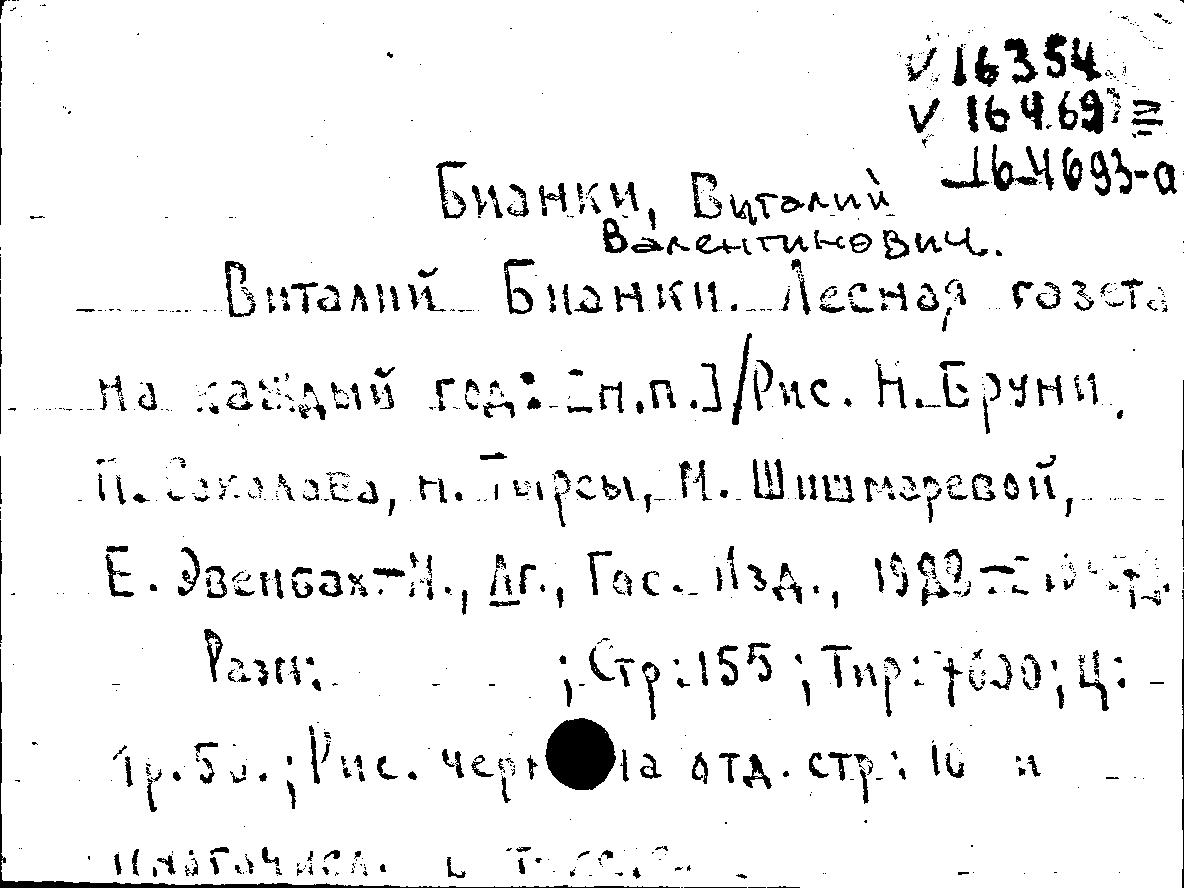 V 16354
V 16469
164693-а
Бианки, Виталий
Валентинович.
Виталий Бианки. Лесная газета
на каждый год: [н.п.]/Рис. Н. Бруни,
П. Соколова, Н. Тырсы, М. Шишмаревой,
Е. Эвенбах.-Н., Лг., Гос. Изд.,
Разм: ; Стр: 155 ; Тир: ; Ц:
1р.50. ; Рис. черн на отд. стр: 10 и
многочисл. в